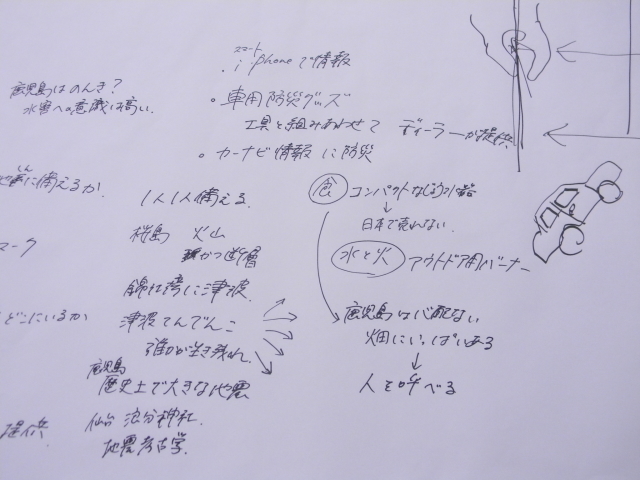 スマート
・iphoneで情報
鹿児島はのんき?
水害への意識は高い.
・車用防災グッズ
工具と組みあわせて ディーラーが提供
・カーナビ情報に防災
に備えるか.
1人1人備える.
桜島 火山
活断層
錦江湾に津波.
どこにいるか
津波てんでんこ
誰かが生き残れ.
鹿児島
歴史上で大きな地震
提供.
仙台 浪分神社.
地震考古学.
食 コンパクトな
↓
日本で売れない.
水と火 アウトドア用バーナー
鹿児島は心配ない
畑にいっぱいある
↓
人を呼べる